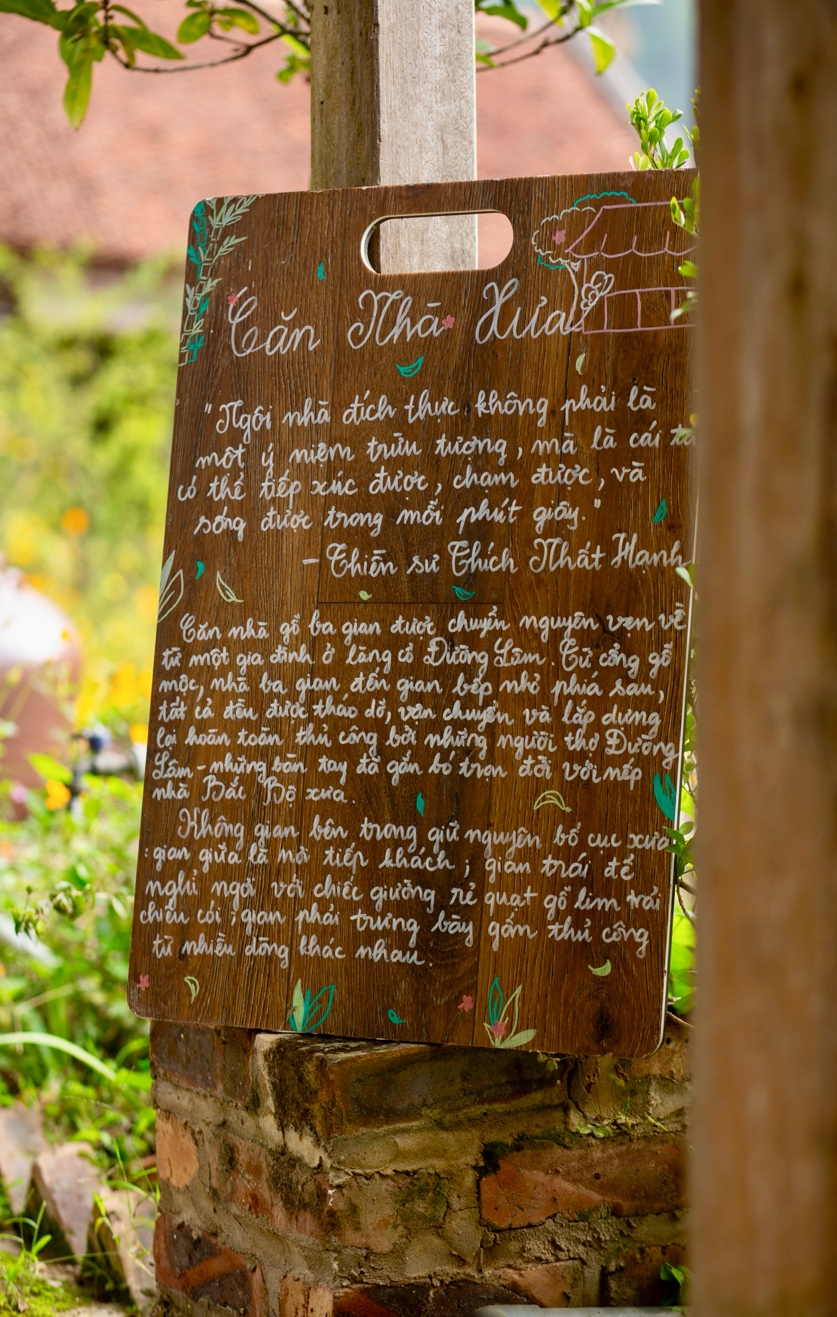 Căn Nhà Xưa
"Ngôi nhà đích thực không phải là
một ý niệm trừu tượng, mà là cái ta
có thể tiếp xúc được, chạm được, và
sống được trong mỗi phút giây."
- Thiền sư Thích Nhất Hạnh
Căn nhà gỗ ba gian được chuyển nguyên vẹn về
từ một gia đình ở làng cổ Đường Lâm. Từ cổng gỗ
mộc, nhà ba gian, đến gian bếp nhỏ phía sau,
tất cả đều được tháo dỡ, vận chuyển và lắp dựng
lại hoàn toàn thủ công bởi những người thợ Đường
Lâm - những bàn tay đã gắn bó trọn đời với nếp
nhà Bắc Bộ xưa.
Không gian bên trong giữ nguyên bố cục xưa
: gian giữa là nơi tiếp khách ; gian trái để
nghỉ ngơi với chiếc giường rẻ quạt gỗ lim trải
chiếu cói ; gian phải trưng bày gốm thủ công
từ nhiều dòng khác nhau.